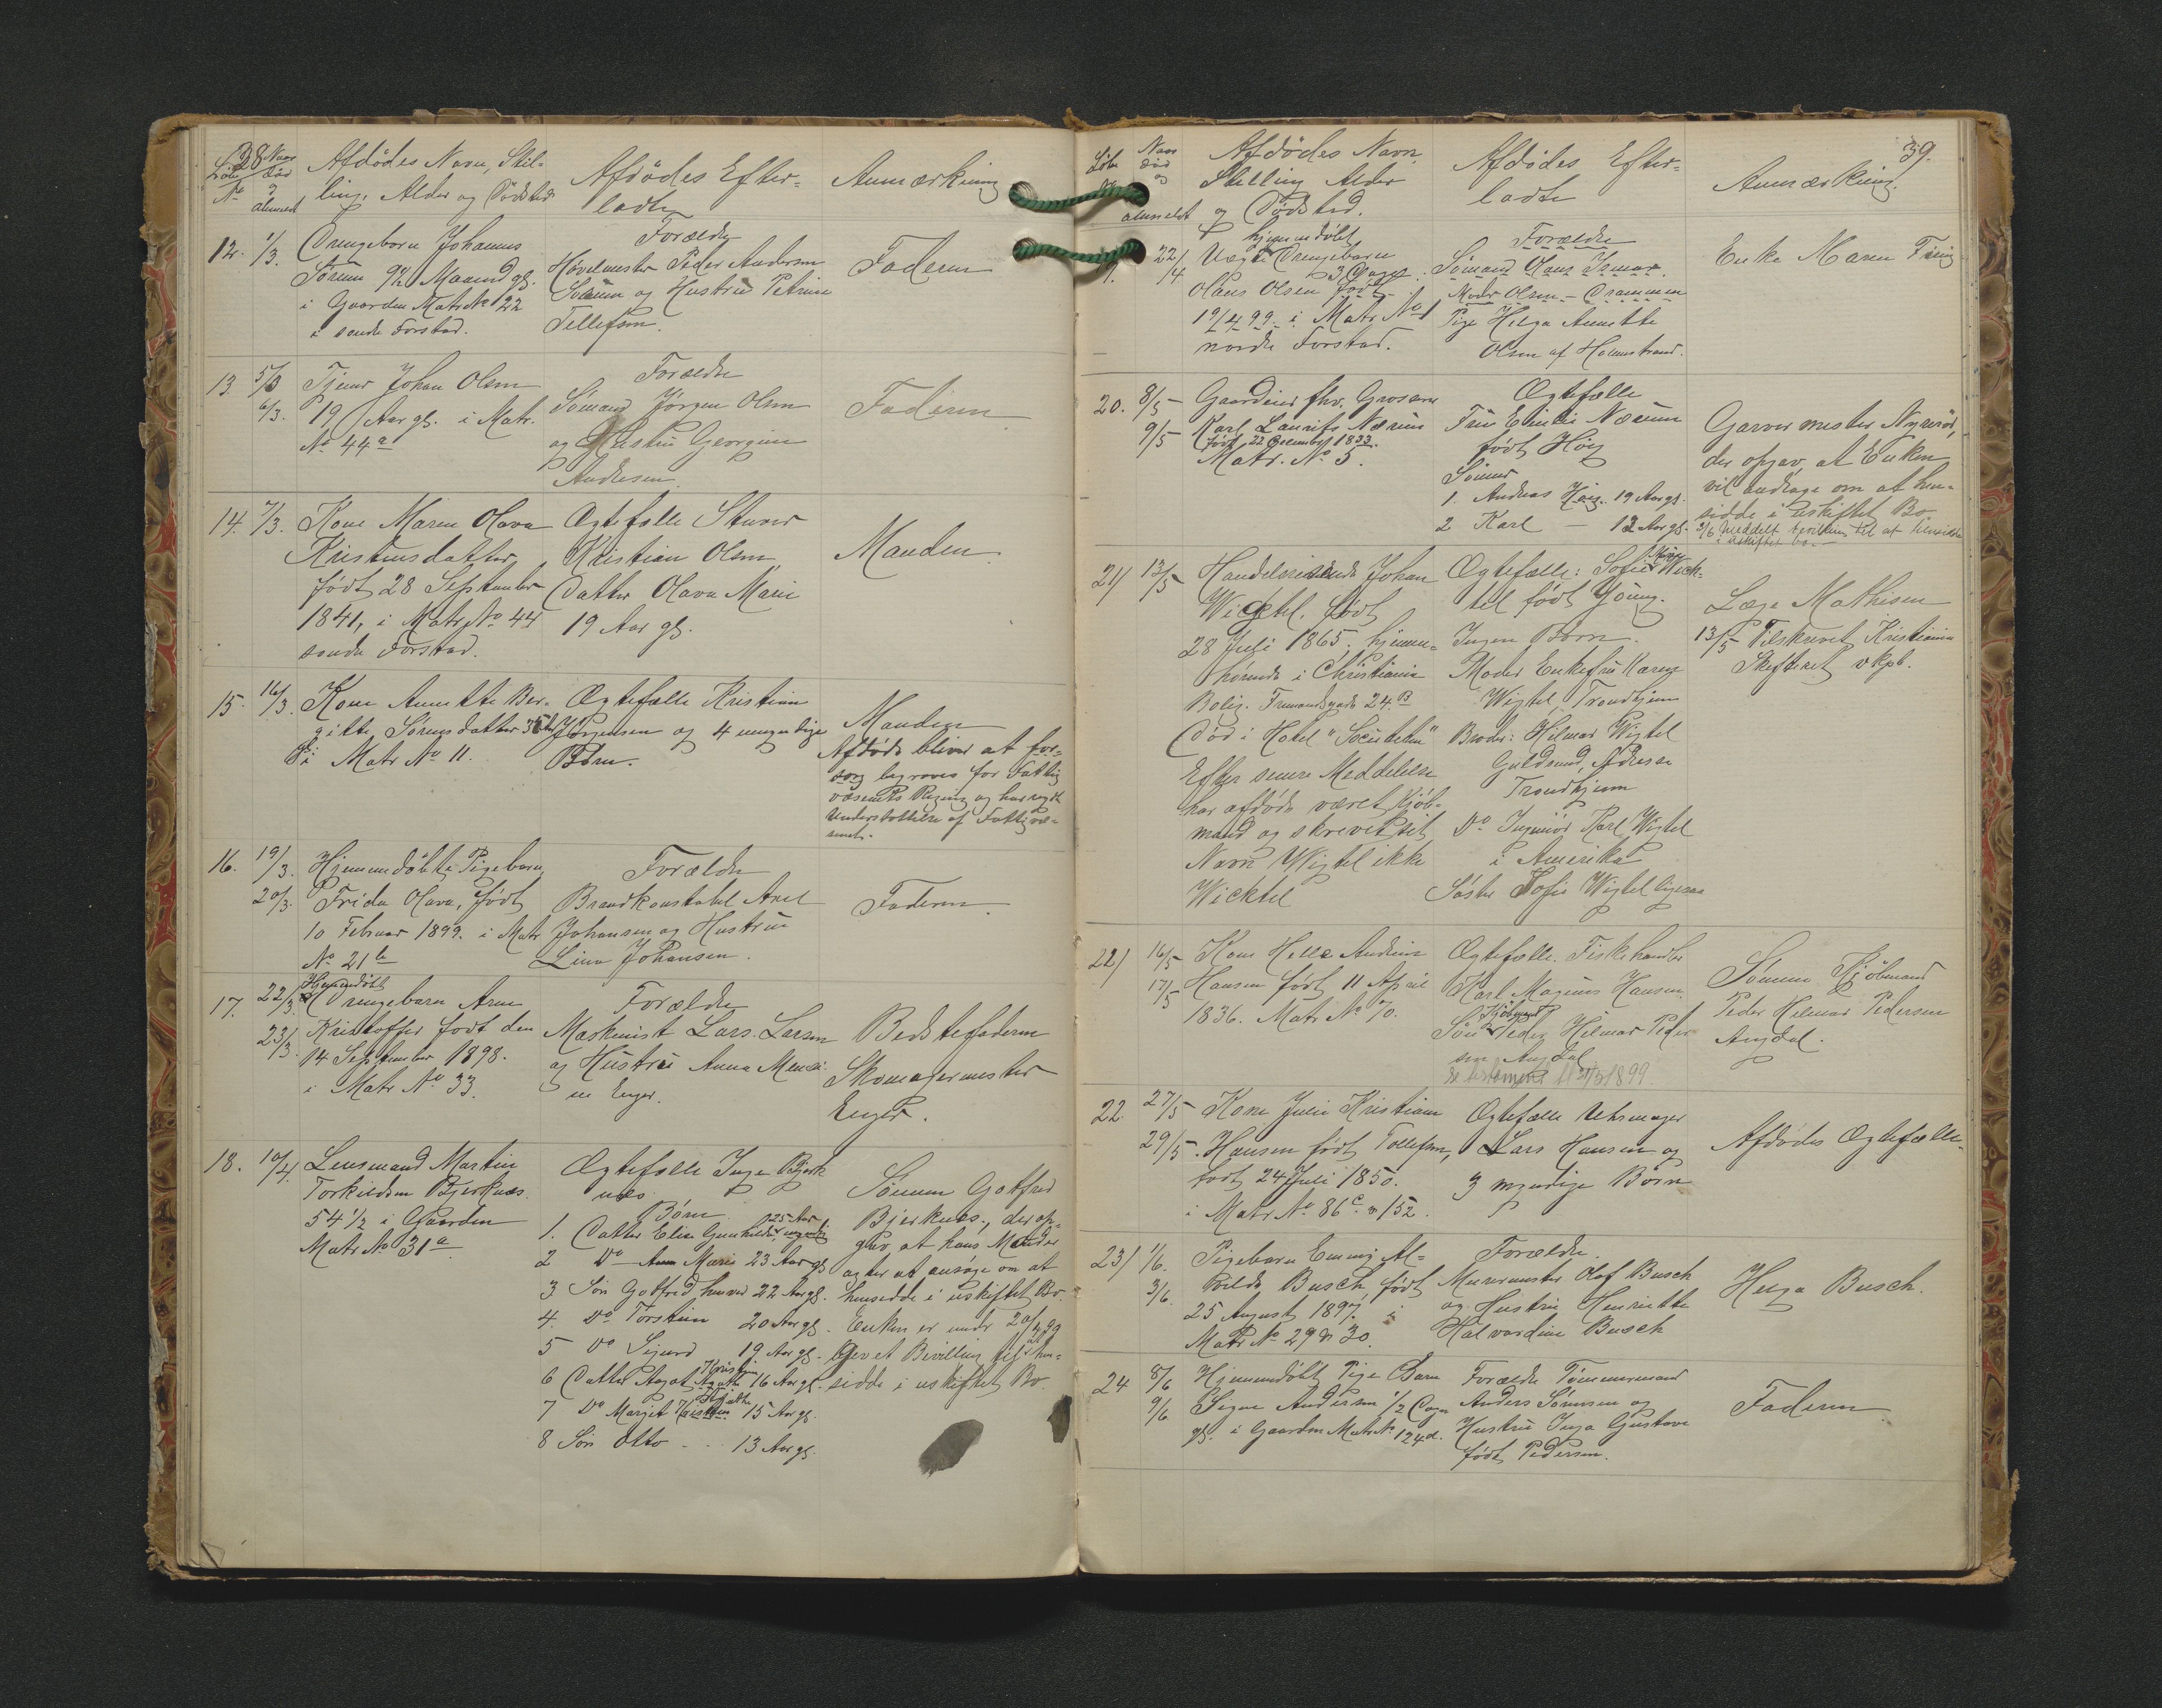 38
Løbe No
Naar død og anmeldt
Afdødes Navn, Stil-
ling, Alder og Dødssted
Afdødes Efter-
ladte
Anmærkning
12. 1/3. Drengebarn Johannes
Sørum 9½ Maaned gl.
i Gaarden Matr No 122
i søndre Forstad.
Forældre
Høvelmester Peder Andersen
Sørum og Hustru Petrine
Tellefsen.
Faderen
13. 5/3 6/3. Tjener Johan Olsen
19 Aar gl. i Matr.
No 44a
Forældre
Sømand Jørgen Olsen
og Hustru Georgine
Andresen
Faderen
14. 7/3. Kone Maren Olava
Kristensdatter
født 28 September
1841, i Matr No 44
søndre Forstad.
Ægtefælle Stuver
Kristian Olsen
Datter Olava Marie
19 Aar gl.
Manden
15. 16/3. Kone Annette Ber-
gitte Sørensdatter 35 Aar
gl. i Matr No 11.
Ægtefælle Kristian
Jørgensen og 4 umyndige
Børn.
Manden
Afdøde bliver at for-
sørg begraves for Fattig
væsenets Regning og har nydt
Understøttelse af Fattigvæ-
senet.
16. 19/3. 20/3. Hjemmedøbte Pigebarn
Frida Olava, født
10 Februar 1899. i Matr
No 21b
Forældre
Brandkonstabel Axel
Johansen og Hustru
Lina Johansen.
Faderen.
17. 22/3. 23/3. Hjemmedøbt
Drengebarn Arne
Kristoffer født den
14 September 1898.
i Matr No 33.
Forældre
Maskinist Lars Larsen
og Hustru Anna
Enger.
Bedstefaderen
Skomagermester
Enger.
18. 10/4. Lensmand Martin
Torkildsen Bjerknæs
54½ i Gaarden
Matr No 31a
Ægtefælle Inge Bjerk
næs
Børn
1. Datter Elise Gunhilde, 25 Aar ugift
2 Do Anne Marie 23 Aar gl
3 Søn Gotfred, 22 Aar gl.
4. Do Torstein 20 Aar gl.
5 Do Sigurd 19 Aar gl.
6 Datter Aagot Agathe 16 Aar gl.
7 Do Margit 15 Aar gl.
8 Søn Otto 13 Aar gl.
Sønnen Gotfred
Bjerknæs, der op-
gav, at hans Moder
agter at ansøge om at
hensidde i uskiftet Bo.
Enken er under 20/4 99
givet Bevilling til at hen-
sidde i uskiftet Bo.
39.
Løbe No
Naar død og anmeldt
Afdødes Navn
Stilling Alder
og Dødssted.
Afdødes Efter-
ladte
Anmærkning.
22/4 hjemmedøbt
Uægte Drengebarn
3 Dage
Olaus Olsen født
19/4 99 i Matr No 1
nordre Forstad.
Forældre
Sømand Hans Ismar
Moder Olsen - Drammen
Pige Helga Annette
Olsen af Holmestrand.
Enke Maren
20. 8/5 9/5 Gaardeier fhv. Grosserer
Karl Laurits Nærum
født 22 December 1833
Matr. No 5.
Ægtefælle
Fru Emilie Nærum
født Høeg
Sønner
1. Andreas Høeg. 19 Aar gl.
2 Karl — 12 Aar gl.
Garvermester Nyrerød,
der opgav, at Enken
vil andrage om at hen-
sidde i uskiftet Bo
3/6 meddelt bevilling til at hensidde
i uskiftet bo.
21/ 13/5 Handelsreisende Johan
Wicktel, født
28 Juli 1865, hjemme-
hørende i Christiania
Bolig. 24.B
Død i Hotel "Societeten"
Efter senere Meddelelse
har afdøde været Kjøb-
mand og skrevet sit
Navn Wigtel ikke
Wicktel
Ægtefælle: Sofie Wick-
tel født Young.
Ingen Børn.
Moder Enkefru Karen
Wigtel, Trondhjem
Broder: Hilmar Wigtel
Guldsmed, Adresse
Trondhjem
Do Ingeniør Karl Wigtel
i Amerika
Søster Sofie Wigtel ligesaa
Læge Mathisen
13/5 Tilskrevet Kristiania
Skifteret
22/ 16/5 17/5 Kone Helle Andrine
Hansen født 11 April
1836. Matr No 70.
Ægtefælle. Fiskehandler
Karl Magnus Hansen.
Søn Kjøbmand Peder Hilmar Peder
sen Angdal
Se testament 1899
Sønnen Kjøbmand
Peder Hilmar Pedersen
Angdal.
22. 27/5 29/5. Kone Julie Kristiane
Hansen født Tollefsen,
født 24 Juli 1850.
i Matr No 86c & 152.
Ægtefælle Uhrmager
Lars Hansen og
3 myndige Børn
Afdødes Ægtefælle.
23/ 1/6. 3/6. Pigebarn Emmy Al-
vilde Busch, født
25 August 1897. i
Matr No 29 & 30.
Forældre.
Murermester Olaf Busch
og Hustru Henriette
Halvardine Busch
Helga Busch.
24 8/6 9/6 Hjemmedøbt Pige Barn
Signe Andersen ½ Dage
gl. i Gaarden Matr No 124d.
Forældre Tømmermand
Anders Sørensen og
Hustru Inga Gustava
født Pedersen.
Faderen